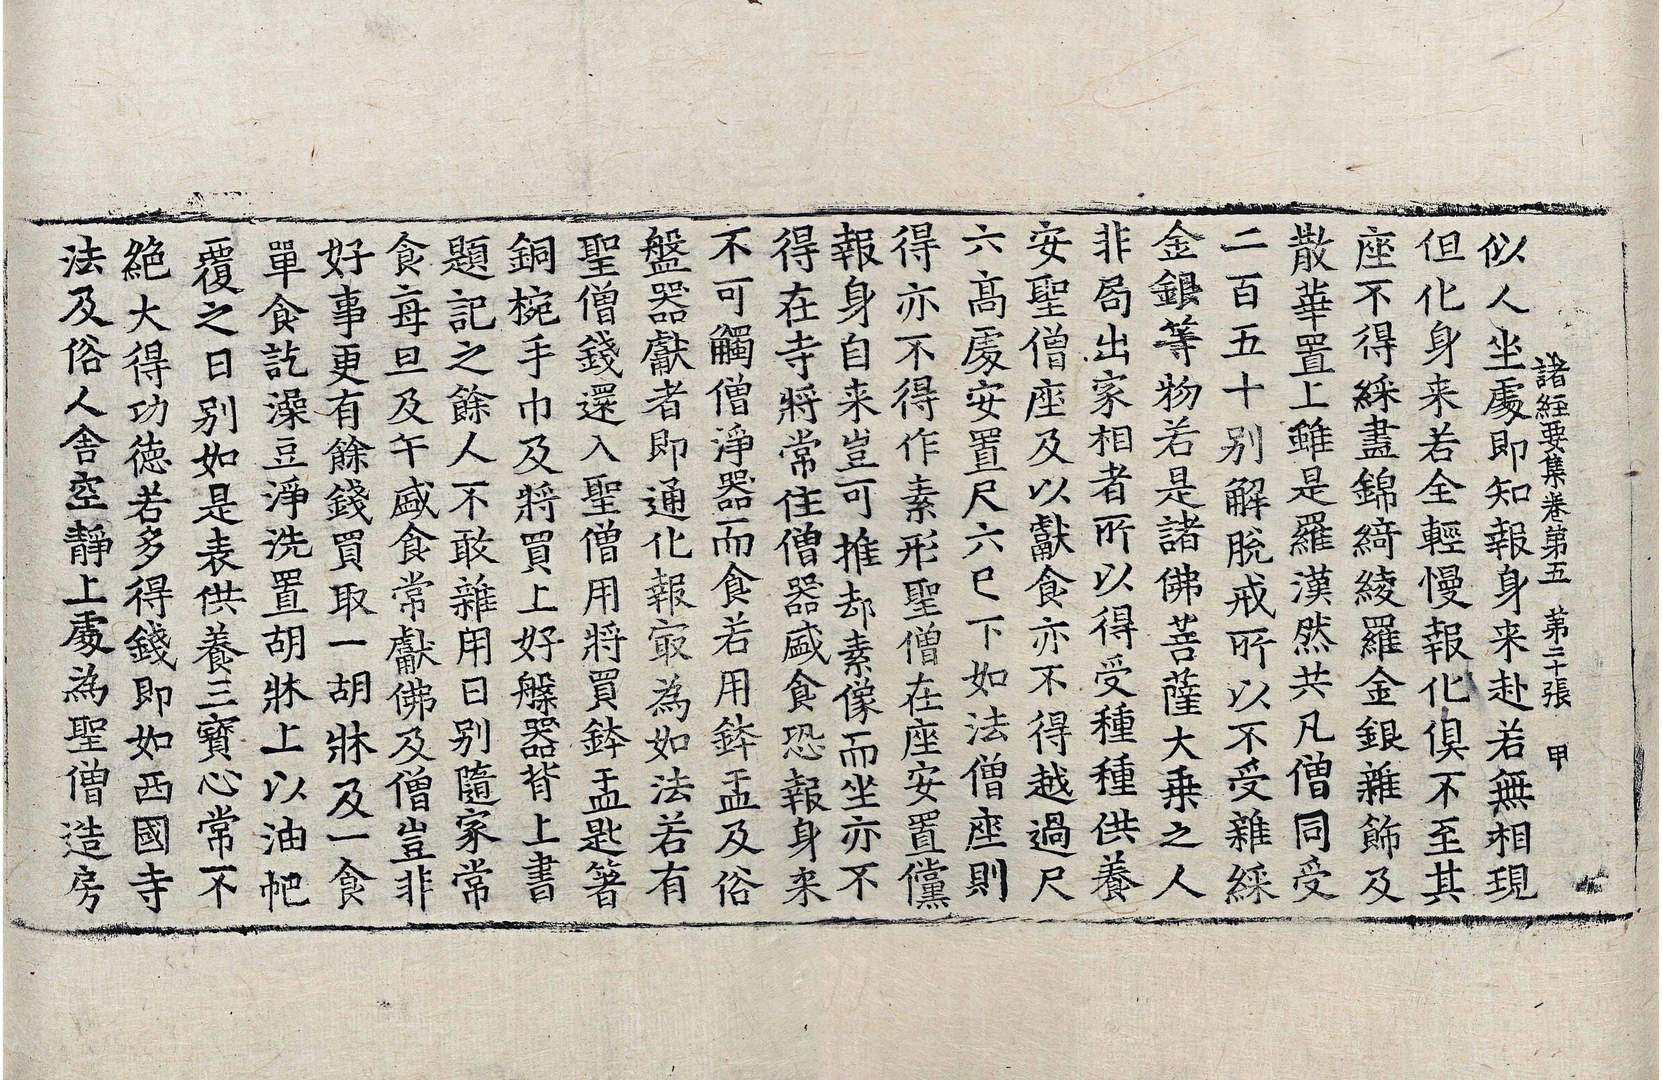 諸経要集卷第五 第二十張 甲
似人坐處即知報身来赴若無相現
但化身来若全輕慢報化俱不至其
座不得綵畫錦綺綾羅金銀雜飾及
散華置上雖是羅漢然共凡僧同受
二百五十別解脫戒所以不受雜綵
金銀等物若是諸佛菩薩大乗之人
非局出家相者所以得受種種供養
安聖僧座及以獻食亦不得越過尺
六高處安置尺六已下如法僧座則
得亦不得作素形聖僧在座安置儻
報身自来豈可推却素像而坐亦不
得在寺將常住僧器盛食恐報身来
不可觸僧淨器而食若用鉢盂及俗
盤器獻者即通化報㝡為如法若有
聖僧錢還入聖僧用將買鉢盂匙箸
銅椀手巾及將買上好槃器背上書
題記之餘人不敢雜用日別隨家常
食每旦及午盛食常獻佛及僧豈非
好事更有餘錢買取一胡牀及一食
單食訖澡豆淨洗置胡牀上以油帊
覆之日別如是表供養三寶心常不
絶大得功德若多得錢即如西國寺
法及俗人舍空靜上處為聖僧造房